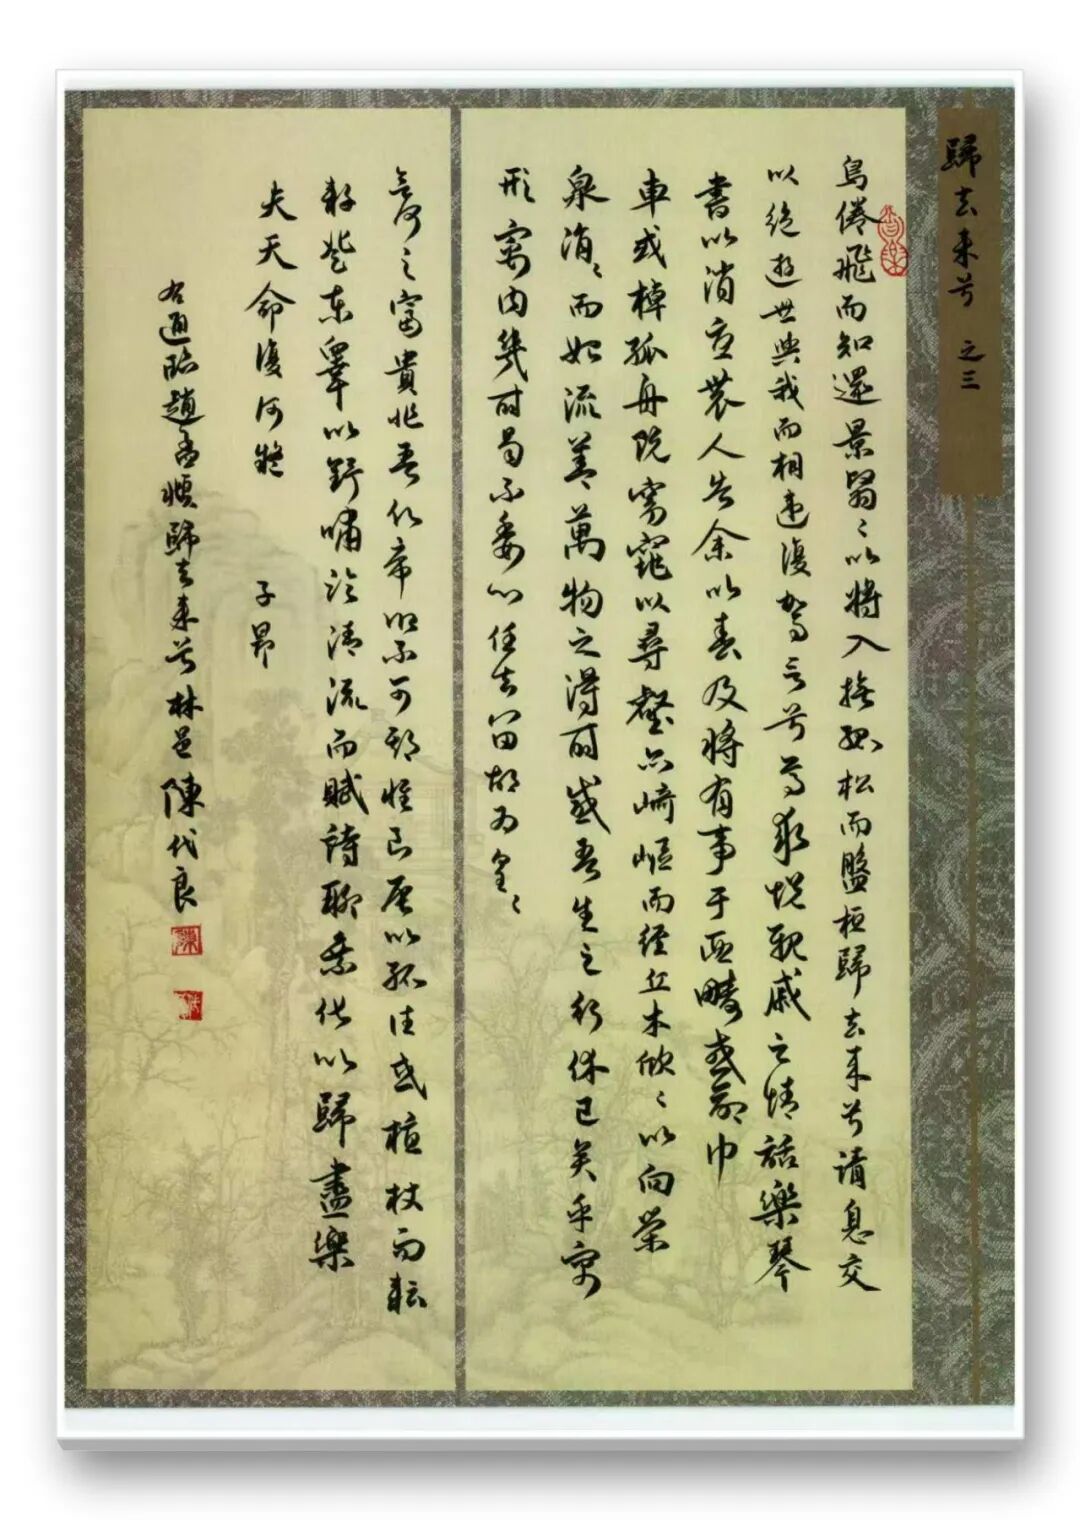 歸去来兮 之三
鳥倦飛而知還景翳〻以將入撫孤松而盤桓歸去来兮請息交
以絶遊世與我而相違復駕言兮焉求悅親戚之情話樂琴
書以消憂農人告余以春及將有事于西疇或命巾
車或棹孤舟既窈窕以尋壑亦崎嶇而經丘木欣〻以向榮
泉涓〻而始流善萬物之得時感吾生之行休已矣乎寓
形寓内幾時曷不委心任去留胡為皇〻
何之富貴非吾願帝鄉不可期懷良辰以孤往或植杖而耘
耔登東皋以舒嘯臨清流而賦詩聊乘化以歸盡樂
夫天命復何疑
子昂
右通臨趙孟頫歸去来兮林邑陳代良